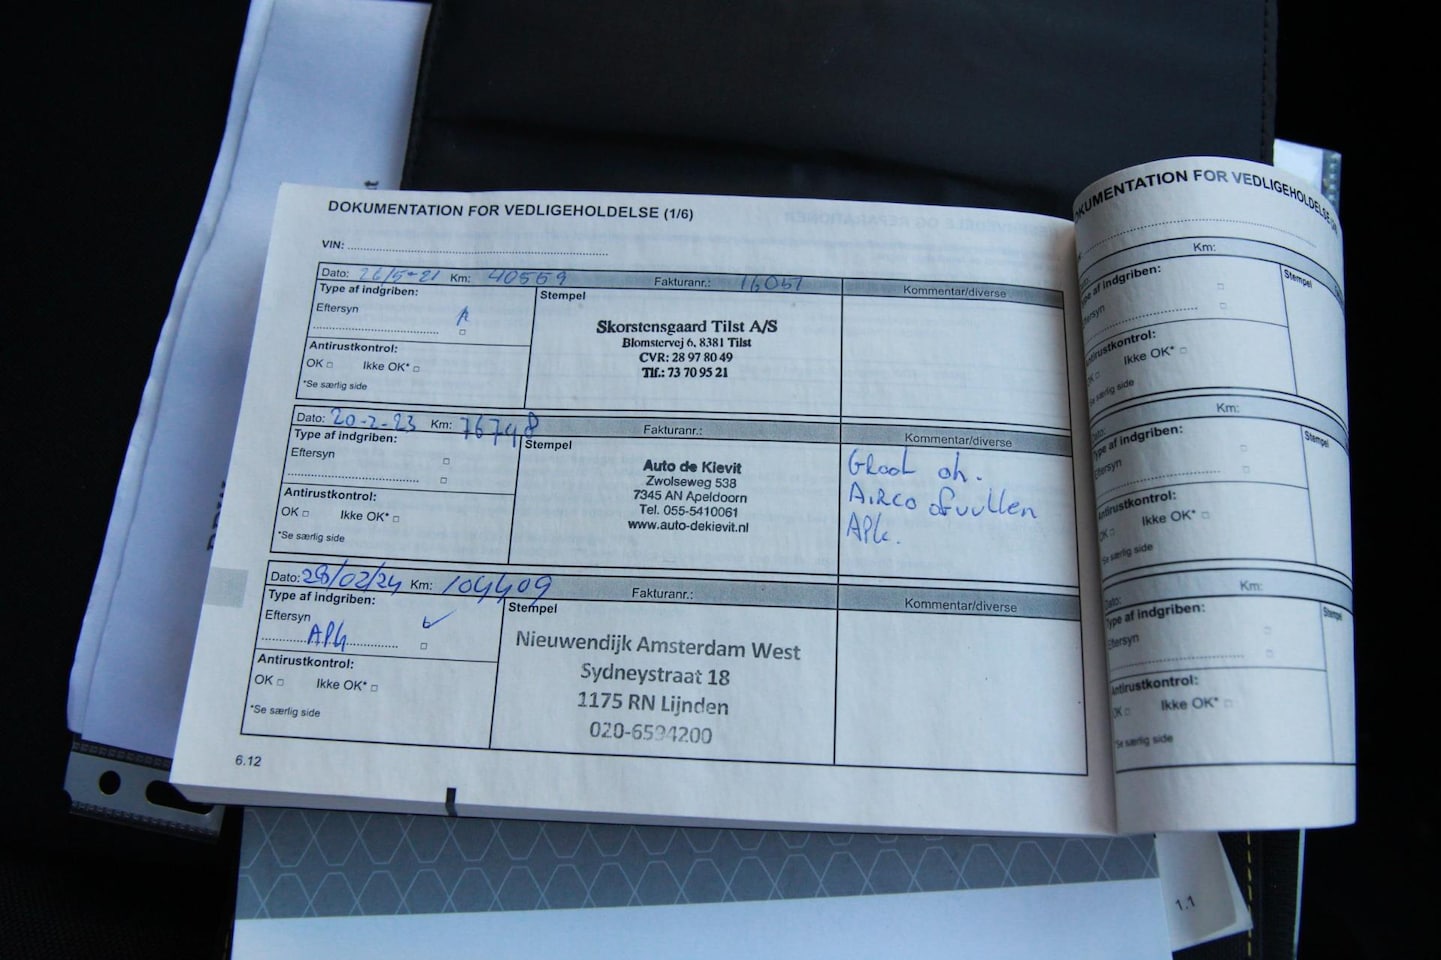 DOKUMENTATION FOR VEDLIGEHOLDELSE (1/6)
VIN:
Dato: 26/5-21 Km: 40559 Fakturanr.: 16051 Kommentar/diverse
Type af indgriben:
Eftersyn
Antirustkontrol:
OK □ Ikke OK* □
*Se særlig side
Stempel
Skorstensgaard Tilst A/S
Blomstervej 6, 8381 Tilst
CVR: 28 97 80 49
Tlf.: 73 70 95 21
Dato: 20-2-23 Km: 76748 Fakturanr.: Kommentar/diverse
Type af indgriben:
Eftersyn □
□
Antirustkontrol:
OK □ Ikke OK* □
*Se særlig side
Stempel
Auto de Kievit
Zwolseweg 538
7345 AN Apeldoorn
Tel. 055-5410061
www.auto-dekievit.nl
Groot oh.
Airco afvullen
APK.
Dato: 28/02/24 Km: 104409 Fakturanr.: Kommentar/diverse
Type af indgriben:
Eftersyn
APK □
Antirustkontrol:
OK □ Ikke OK* □
*Se særlig side
Stempel
Nieuwendijk Amsterdam West
Sydneystraat 18
1175 RN Lijnden
020-6594200
6.12
KUMENTATION FOR VEDLIGEHOLDELSE
Km:
Type af indgriben:
Eftersyn
Antirustkontrol:
OK □ Ikke OK* □
Se særlig side
Stempel
Dato: Km:
Type af indgriben:
Eftersyn
Antirustkontrol:
OK □ Ikke OK* □
*Se særlig side
Stempel
Dato: Km:
Type af indgriben:
Eftersyn
Antirustkontrol:
OK □ Ikke OK* □
*Se særlig side
Stempel
1.1